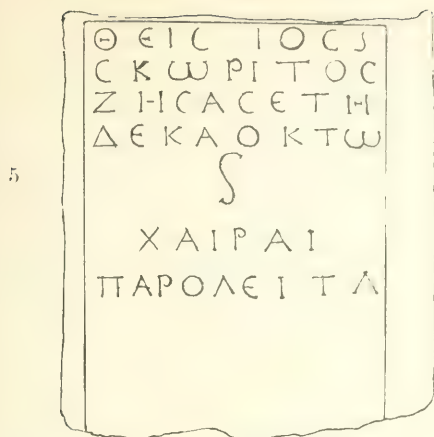 ΘЄΙϹ ΙΟϹS
ϹΚѠΡΙΤΟϹ
ΖΗϹΑϹЄΤΗ
ΔЄΚΑΟΚΤѠ
5 S
ΧΑΙΡΑΙ
ΠΑΡΟΛЄΙΤΑ